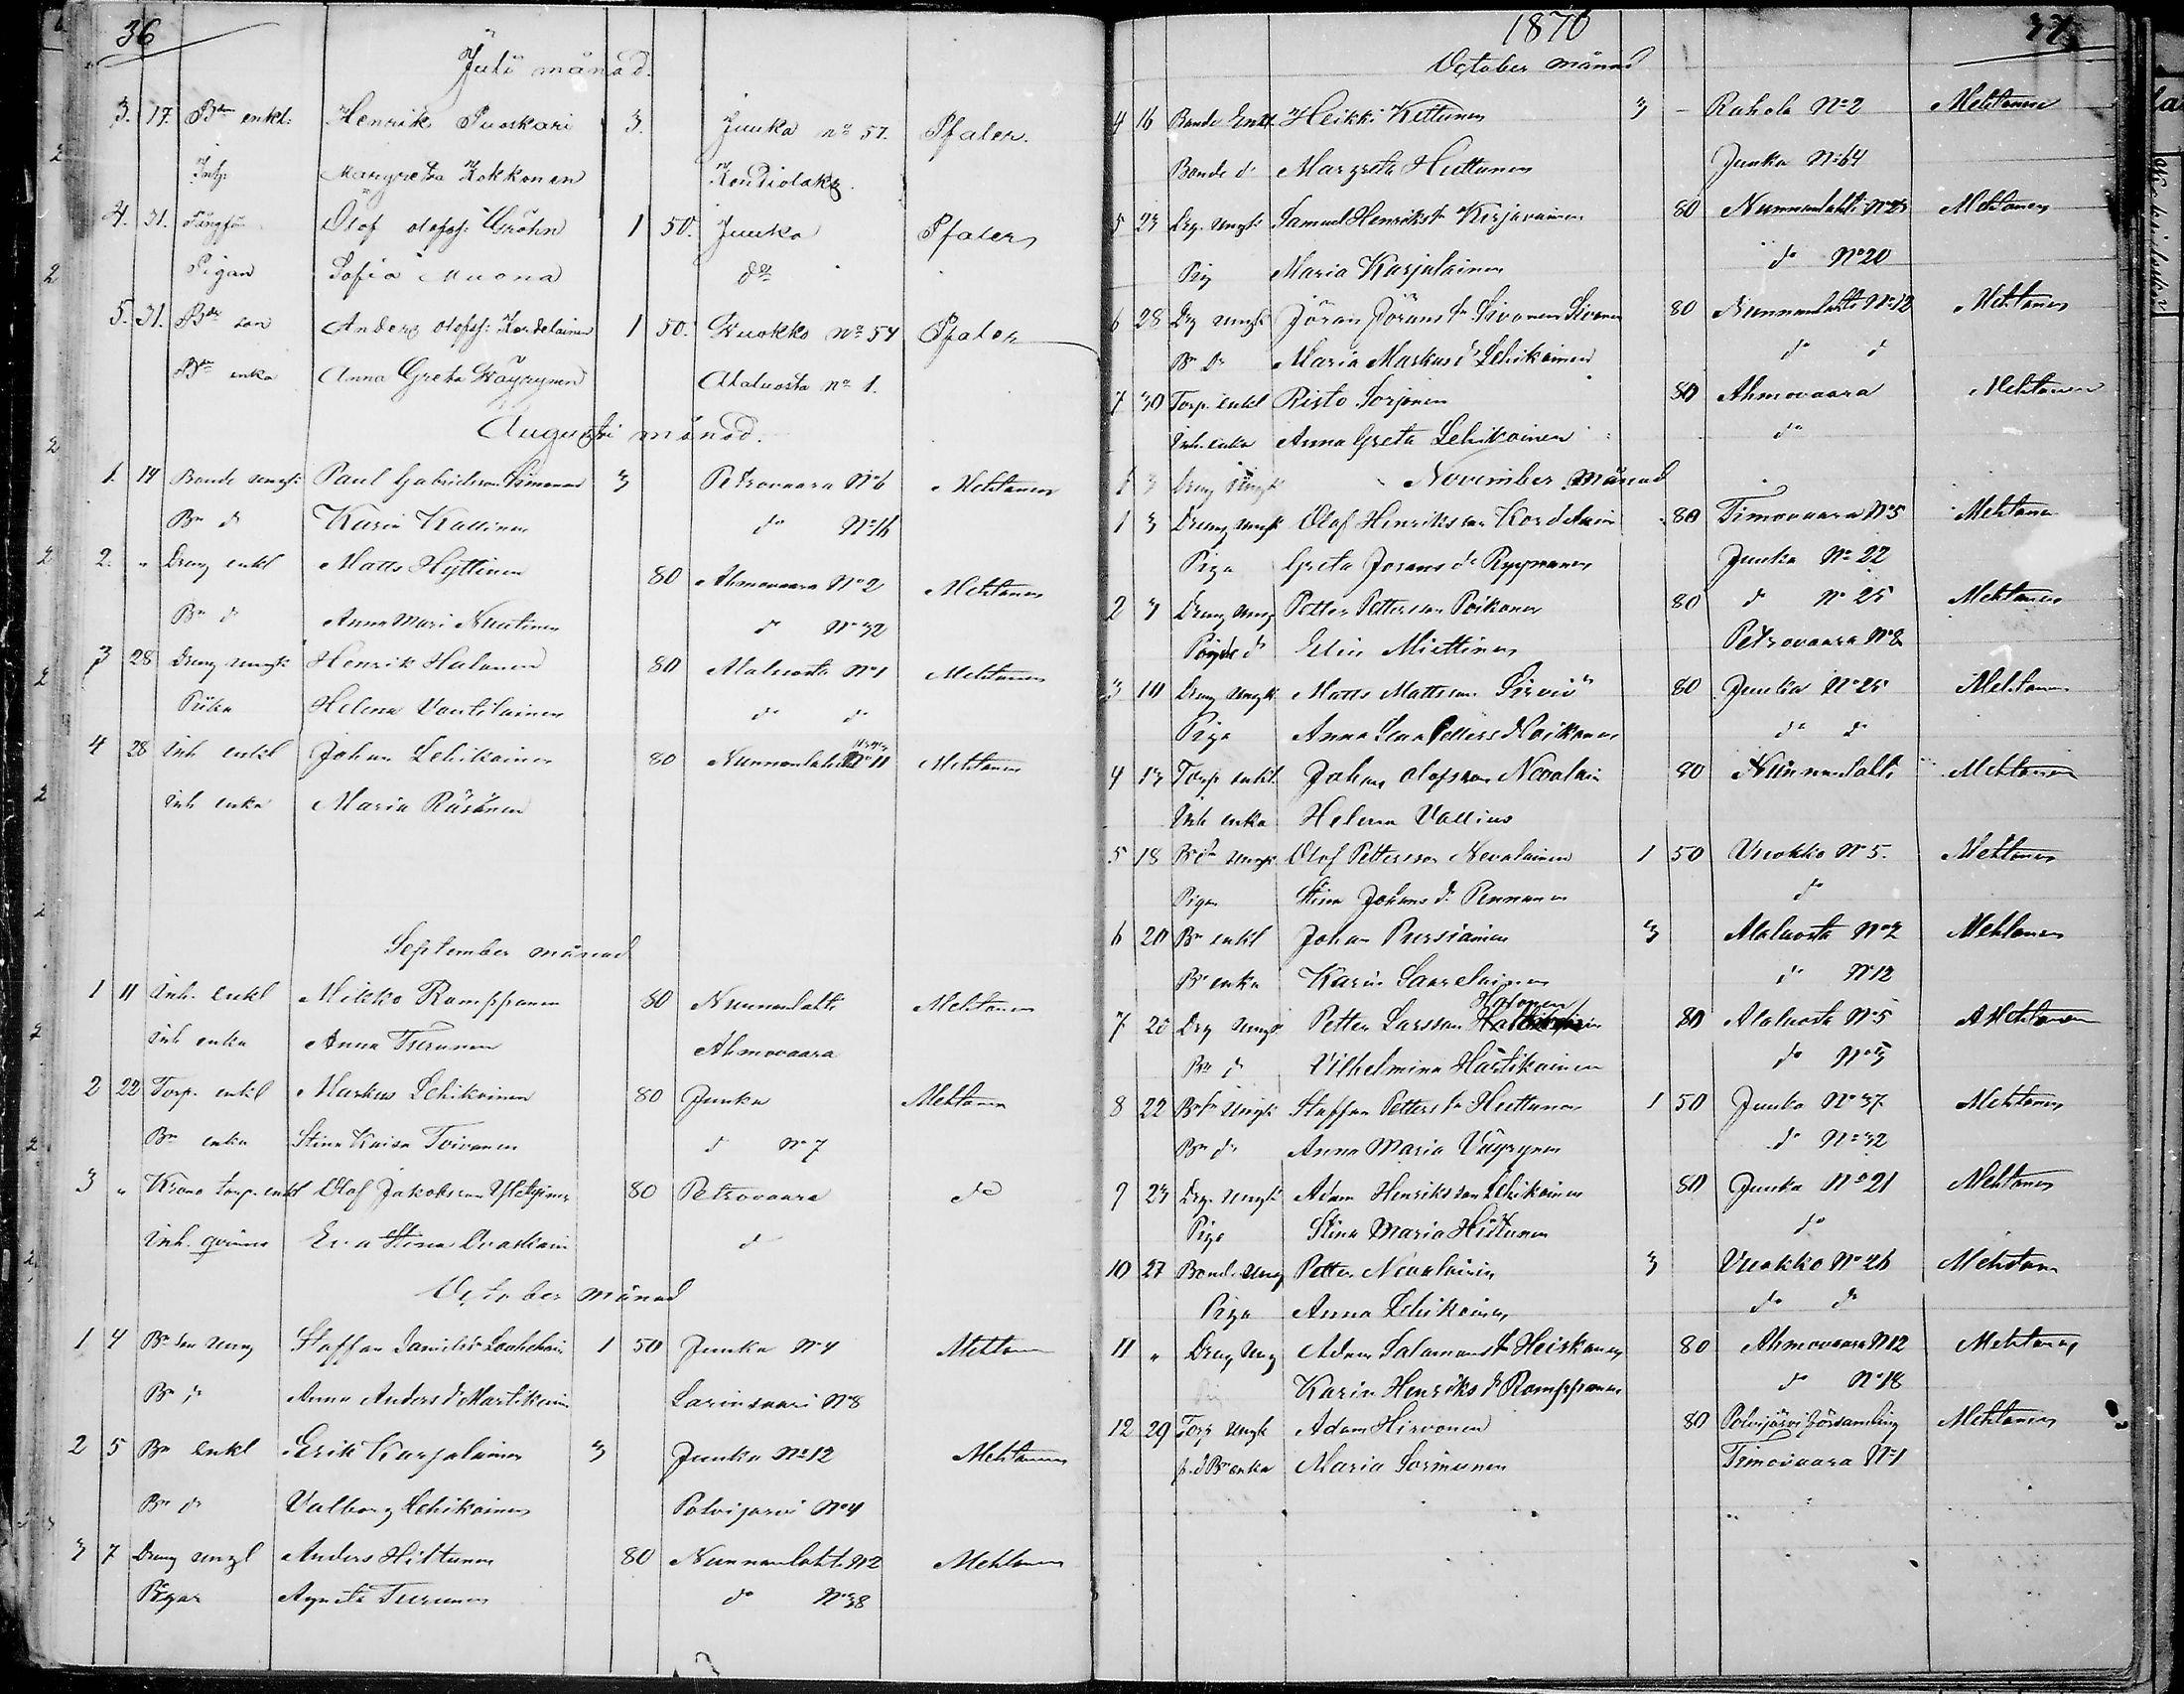 36
Juli månad.
3. 17. Bde enkl: Henrik Puoskari 3. Juuka no 57. Pfaler.
Inh: Margreta Kokkonen Kontiolaks
4. 31. Olof Olofss: Gröhn 1 50. Juuka Pfaler
Pigan Sofia Muona do
5. 31. Bde son Anders Olofss: Kordelainen 1 50. Wuokko no 54 Pfaler
Bde enka Anna Greta Wäyrynen Alaluosta no 1.
Augusti månad.
1. 14 Bonde ungk: Paul Gabrielsson Timonen 3 Petrovaara No 6 Mehtonen
Bn d Karin Kallinen do No 16
2. " Dreng enkl Matts Hyttinen 80 Ahmovaara No 2 Mehtonen
Bn d Anna Mari Nuutinen do No 32
3 28 Dreng ungk Henrik Halonen 80 Alaluosta No 1 Mehtonen
Piika Helena Vantilainen do do
4 28 Inh enkl Johan Lehikoinen 80 Nunnanlahti No 11 Mehtonen
Inh enka Maria Räsänen
September månad
1 11 Inh. enkl Mikko Romppanen 80 Nunnanlahti Mehtonen
Inh enka Anna Turunen Ahmovaara
2 22 Torp. enkl Markus Lehikoinen 80 Juuka Mehtonen
Bn enka Stina Kaisa Toivanen d No 7
3 " Krono torp. enkl Olof Jakobsson 80 Petrovaara do
Inh. qvinna Eva Stina d
October månad
1 4 Bn son ung Staffan 1 50 Juuka No 4 Mehtonen
Bn d Anna Anders d Martikain Larinsaari No 8
2 5 Bn Enkl Erik Karjalainen 3 Juuka No 12 Mehtonen
Bn d Valborg Lehikoinen Polvijärvi No 4
3 7 Dreng ungk Anders Hiltunen 80 Nunnanlaht. No 2 Mehtonen
Pigan Agneta Turunen do No 38
1870
37.
October månad
4 16 Bonde Enkl Heikki Kettunen 3 - Rahola No 2 Mehtonen
Bonde d Margreta Huttunen Juuka No 64
5 23 Drg. ungk Samuel Henriksn Kirjavainen 80 Nunnanlahti No 23 Mehtonen
Pig Maria Karjalainen do No 20
6 28 Drg ungk Jöran Jörans sn Sivonen Sivonen 80 Nunnanlahti No 12 Mehtonen
Bn Dr Maria Markus d Lehikoinen do d
7 30 Torp. enkl Risto Sorjonen 80 Ahmovaara Mehtonen
Inh. enka Anna Greta Lehikoinen do
1 3 Dreng ungk November månad
1 3 Dreng ungk Olof Henriksson Kordelain 80 Timovaara No 5 Mehtonen
Piga Greta Jorans dr Ryynanen Juuka No 22
2 3 Dreng ung Petter Pettersson Poikonen 80 d No 25 Mehtonen
d Elin Miettinen Petrovaara No 8
3 10 Dreng ungk Matts Mattsson Sirviö 80 Juuka No 25 Mehtonen
Piga Anna Petters d Poikonen do do
4 13 Torp enkl Johan Olofsson Nevalain 80 Nunnanlahti Mehtonen
Inh enka Helena Vallius
5 18 Bdsn ungk Olof Pettersson Nevalainen 1 50 Vuokko No 5. Mehtonen
Pigan Stina Johans d Pennanen do
6 20 Bn enkl Johan Pursiainen 3 Alaluosta No 2 Mehtonen
Bn enka Karin Saarelainen do No 12
7 20 Drg ungk Petter Larsson Halonen 80 Alaluosta No 5 Mehtonen
Bn d Vilhelmina Hartikainen do No 3
8 22 Bn sn Ungk Staffan Petters sn Huttunen 1 50 Juuka No 37 Mehtonen
Bn dr Anna Maria Väyrynen do No 32
9 23 Drg. ungk Adam Henriksson Lehikoinen 80 Juuka No 21 Mehtonen
Piga Stina Maria Hiltunen do
10 27 Bond. Ung Petter Nevalainen 3 Vuokko No 26 Mehtonen
Piga Anna Lehikoinen do do
11 " Dreng Ung Adam Salomons sn Heiskanen 80 Ahmovaara No 12 Mehtonen
Karin Henriks dr Romppanen do No 18
12 29 Torp Ungk Adam Hirvonen 80 Polvijärvi församling Mehtonen
f.d Bn enka Maria Sormunen Timovaara No 1